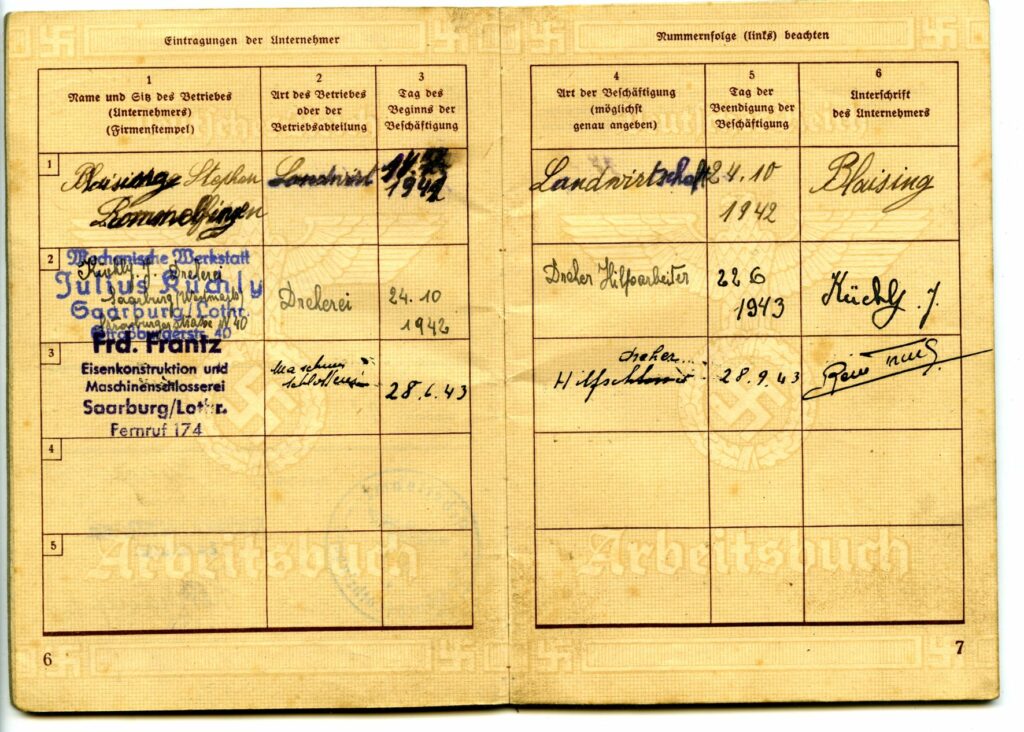 Eintragungen der Unternehmer
1
Name und Sitz des Betriebes
(Unternehmers)
(Firmenstempel)
2
Art des Betriebes
oder der
Betriebsabteilung
3
Tag des
Beginns der
Beschäftigung
1
Blaising Stephan
Rommelfingen
Landwirt
1942
2
Mechanische Werkstatt
Küchly. J. Dreherei
Julius Küchly
Saarburg (Westmark)
Saarburg/Lothr.
Straßburgerstraße N 40
Straßburgerstr. 40
Dreherei
24.10
1942
3
Frd. Frantz
Eisenkonstruktion und
Maschinenschlosserei
Saarburg/Lothr.
Fernruf 174
28.6.43
4
5
Arbeitsbuch
6
Nummernfolge (links) beachten
4
Art der Beschäftigung
(möglichst
genau angeben)
5
Tag der
Beendigung der
Beschäftigung
6
Unterschrift
des Unternehmers
Landwirtschaft
24.10
1942
Blaising
Dreher Hilfsarbeiter
22 6
1943
Küchly J.
Dreher
28.9.43
Arbeitsbuch
7